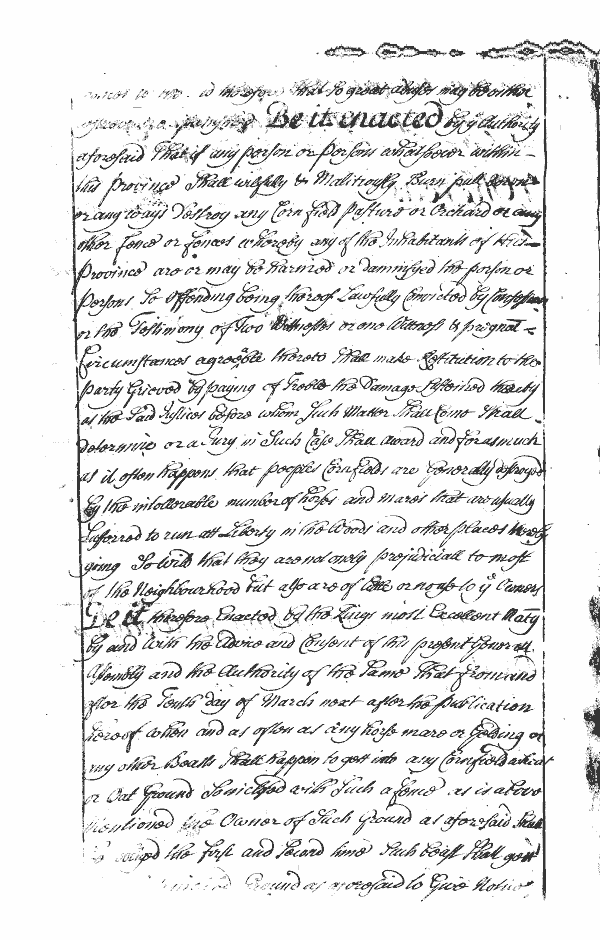 therefore that so great abuses may be either
Be it enacted by ye Authority
aforesaid That if any person or persons whatsoever within
this province Shall wilfully & Malitiously Burn pull down
or any ways Destroy any Cornfield Pasture or Orchard or any
other fence or fences whereby any of the Inhabitants of this
Province are or may be harmed or damnifyed the person or
Persons So Offending being thereof Lawfully Convicted by Confession
or the Testimony of Two Wittnesses or one Wittness &
Circumstances agreeable thereto Shall make Restitution to the
Party Grieved by paying of Treble the Damage Susteined thereby
as the Said Justices before whom Such Matter Shall Come Shall
determine or a Jury in Such Case Shall award and forasmuch
as it often happens that peoples Cornfields are Generally destroyed
by the intollerable number of horses and mares that are usually
Sufferred to run att Liberty in the Woods and other places
going So wild that they are not only prejudiciall to most
of the Neighbourhood but also are of little or no use to ye Owners
Be it therefore Enacted by the Kings most Excellent Maty
by and with the advice and Consent of this present Generall
Assembly and the Authority of the Same That from and
after the Tenth day of March next after the publication
hereof when and as often as any horse mare or Gelding or
any other Beasts Shall happen to gett into any Cornfield wheat
or Oat Ground with Such a fence as is above
mentioned the Owner of Such Ground as aforesaid Shall
be obliged the first and Second time Such beast Shall gett
Ground as aforesaid to Give Notice